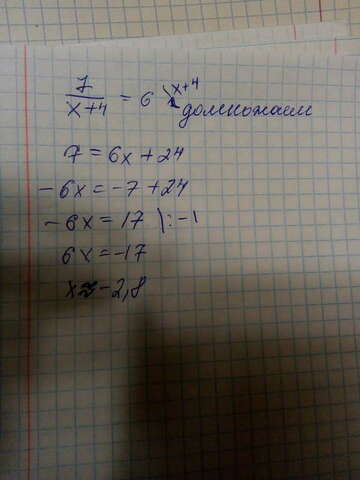 7/(x+4) = 6 \ x+4 домножаем
7 = 6x + 24
-6x = -7 + 24
-6x = 17 |: -1
6x = -17
x ≈ -2,8